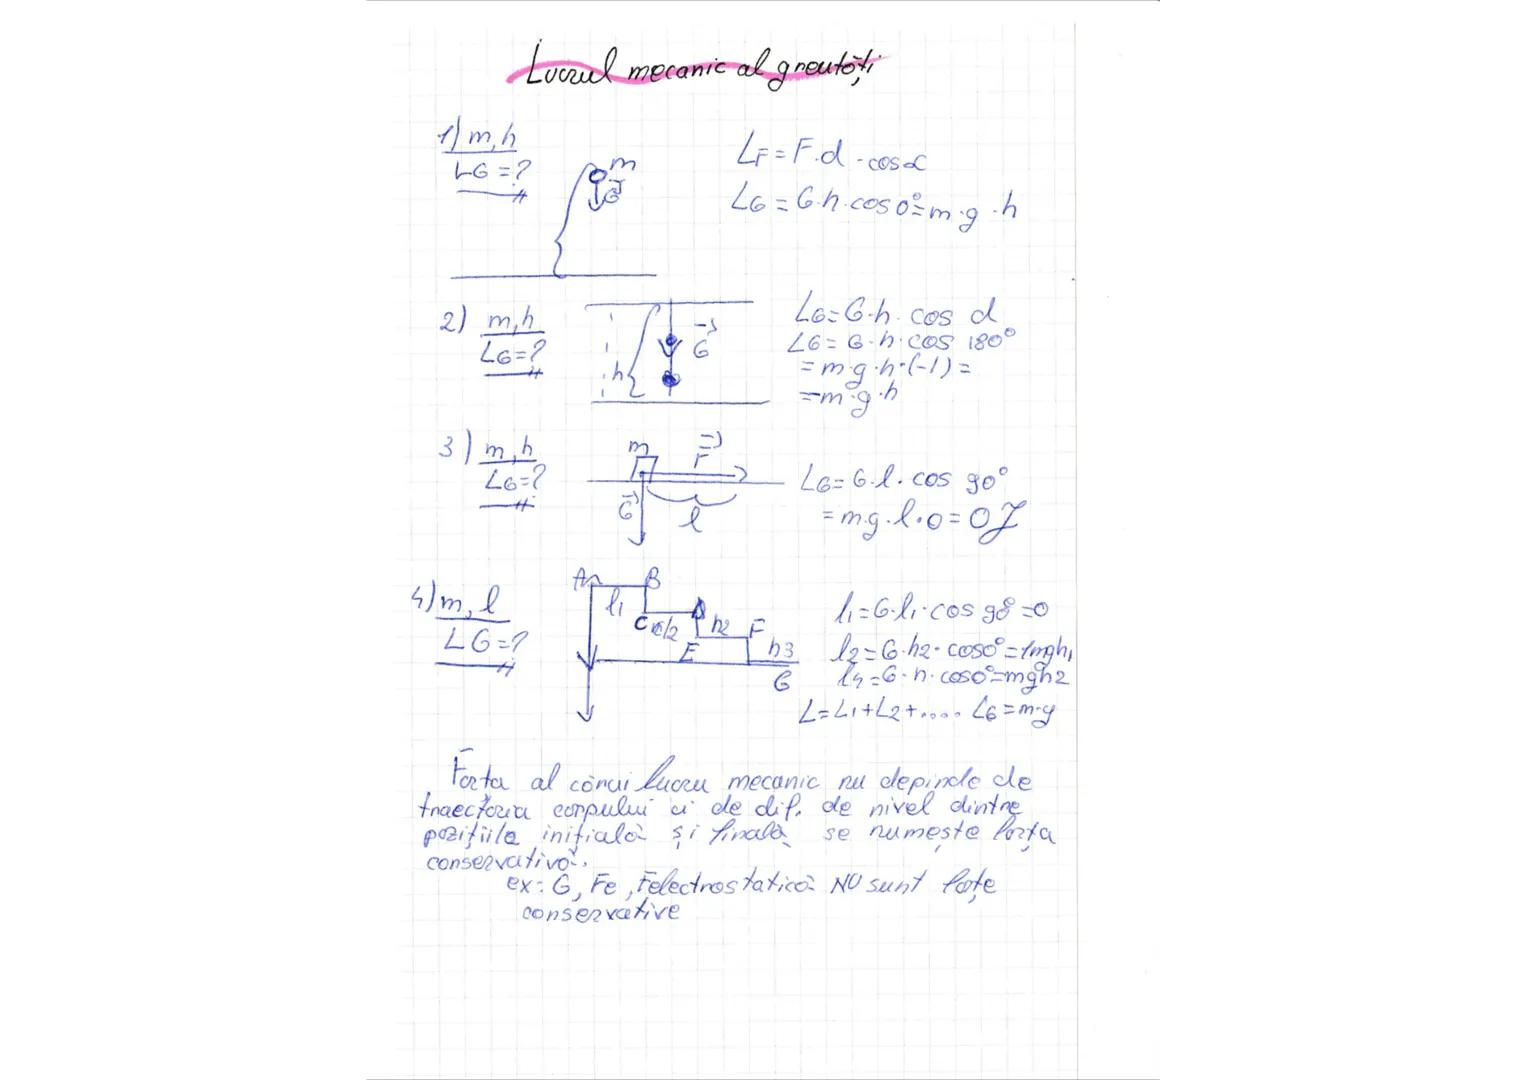 Lucrul mecanic al greutății
1) m,h
LG = ?
m
G
LF = F.d - cos α
LG = G.h.cos 0° = m.g.h
2) m,h
LG = ?
h
G
LG = G.h. cos d
LG = G.h.cos 180°
= m.g.h.(-1) =
= -m.g.h
3) m,h
LG = ?
m
F
G
l
LG = G.l. cos 90°
= m.g.l.0 = 0 J
4) m, l
LG = ?
A B
l1
C D h2 F
E h3
G
l1 = G.l1.cos 90° = 0
l2 = G.h2.cos0° = 1mgh1
l4 = G.h.cos0° = mgh2
L = L1 + L2 + .... LG = m.g
Forta al cărui lucru mecanic nu depinde de
traectoria corpului ci de dif. de nivel dintre
pozițiile inițială și finală se numește forța
conservativă.
ex: G, Fe, Felectrostatică NU sunt forțe
conservative